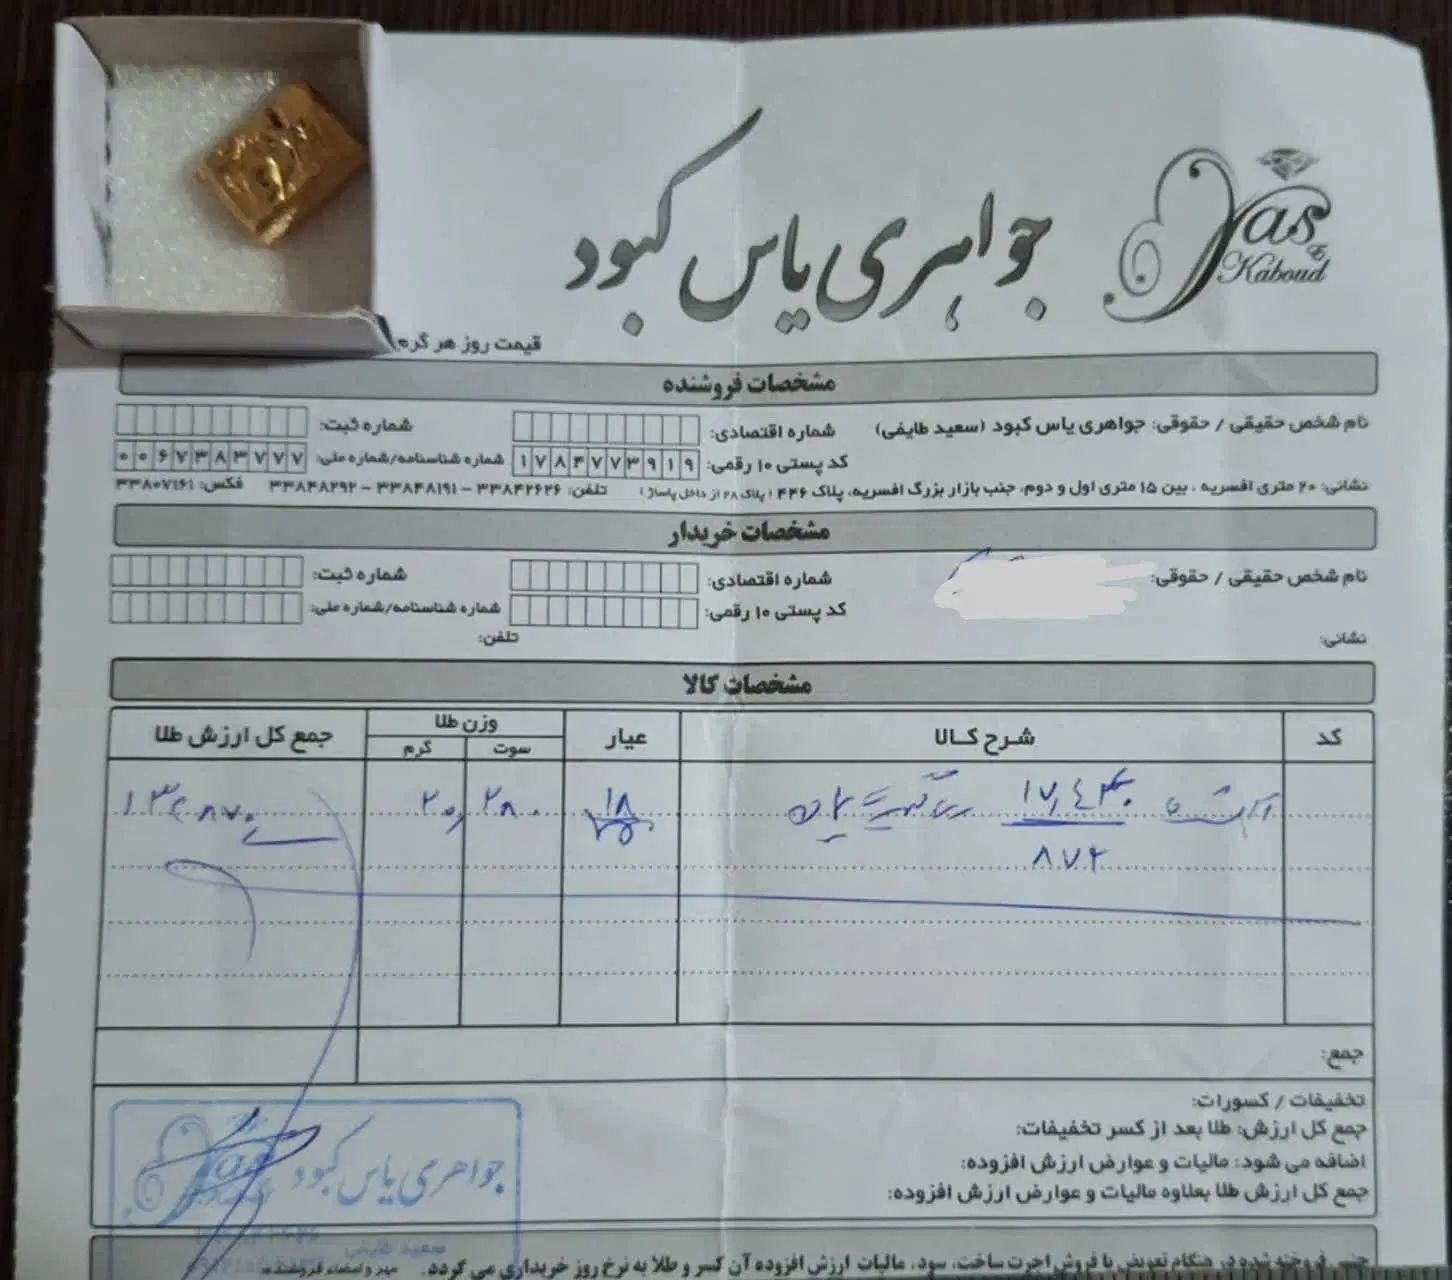 جواهری یاس کبود
Yas
Kaboud
قیمت روز هر گرم
مشخصات فروشنده
نام شخص حقیقی / حقوقی: جواهری یاس کبود (سعید طایفی) شماره اقتصادی: شماره ثبت:
کد پستی ۱۰ رقمی: ۱۷۸۴۷۷۳۹۱۹ شماره شناسنامه/شماره ملی: ۰۰۶۷۳۸۳۷۷۷
نشانی: ۲۰ متری افسریه ، بین ۱۵ متری اول و دوم، جنب بازار بزرگ افسریه، پلاک ۴۴۶ ( پلاک ۲۸ از داخل پاساژ ) تلفن: ۳۳۸۴۲۶۲۶ - ۳۳۸۴۸۱۹۱ - ۳۳۸۴۸۲۹۲ فکس: ۳۳۸۰۷۱۶۱
مشخصات خریدار
نام شخص حقیقی / حقوقی: شماره اقتصادی: شماره ثبت:
کد پستی ۱۰ رقمی: شماره شناسنامه/شماره ملی:
نشانی: تلفن:
مشخصات کالا
کد شرح کالا عیار وزن طلا جمع کل ارزش طلا
سوت گرم
۱۸ ۲۸۰ ۲۰
۸۷۲ ۷۵۰
جمع:
تخفیفات / کسورات:
جمع کل ارزش: طلا بعد از کسر تخفیفات:
اضافه می شود: مالیات و عوارض ارزش افزوده:
جمع کل ارزش طلا بعلاوه مالیات و عوارض ارزش افزوده:
جواهری یاس کبود
سعید طایفی
مهر و امضاء فروشنده:
جنس فروخته شده در هنگام تعویض یا فروش اجرت ساخت، سود، مالیات ارزش افزوده آن کسر و طلا به نرخ روز خریداری می گردد.